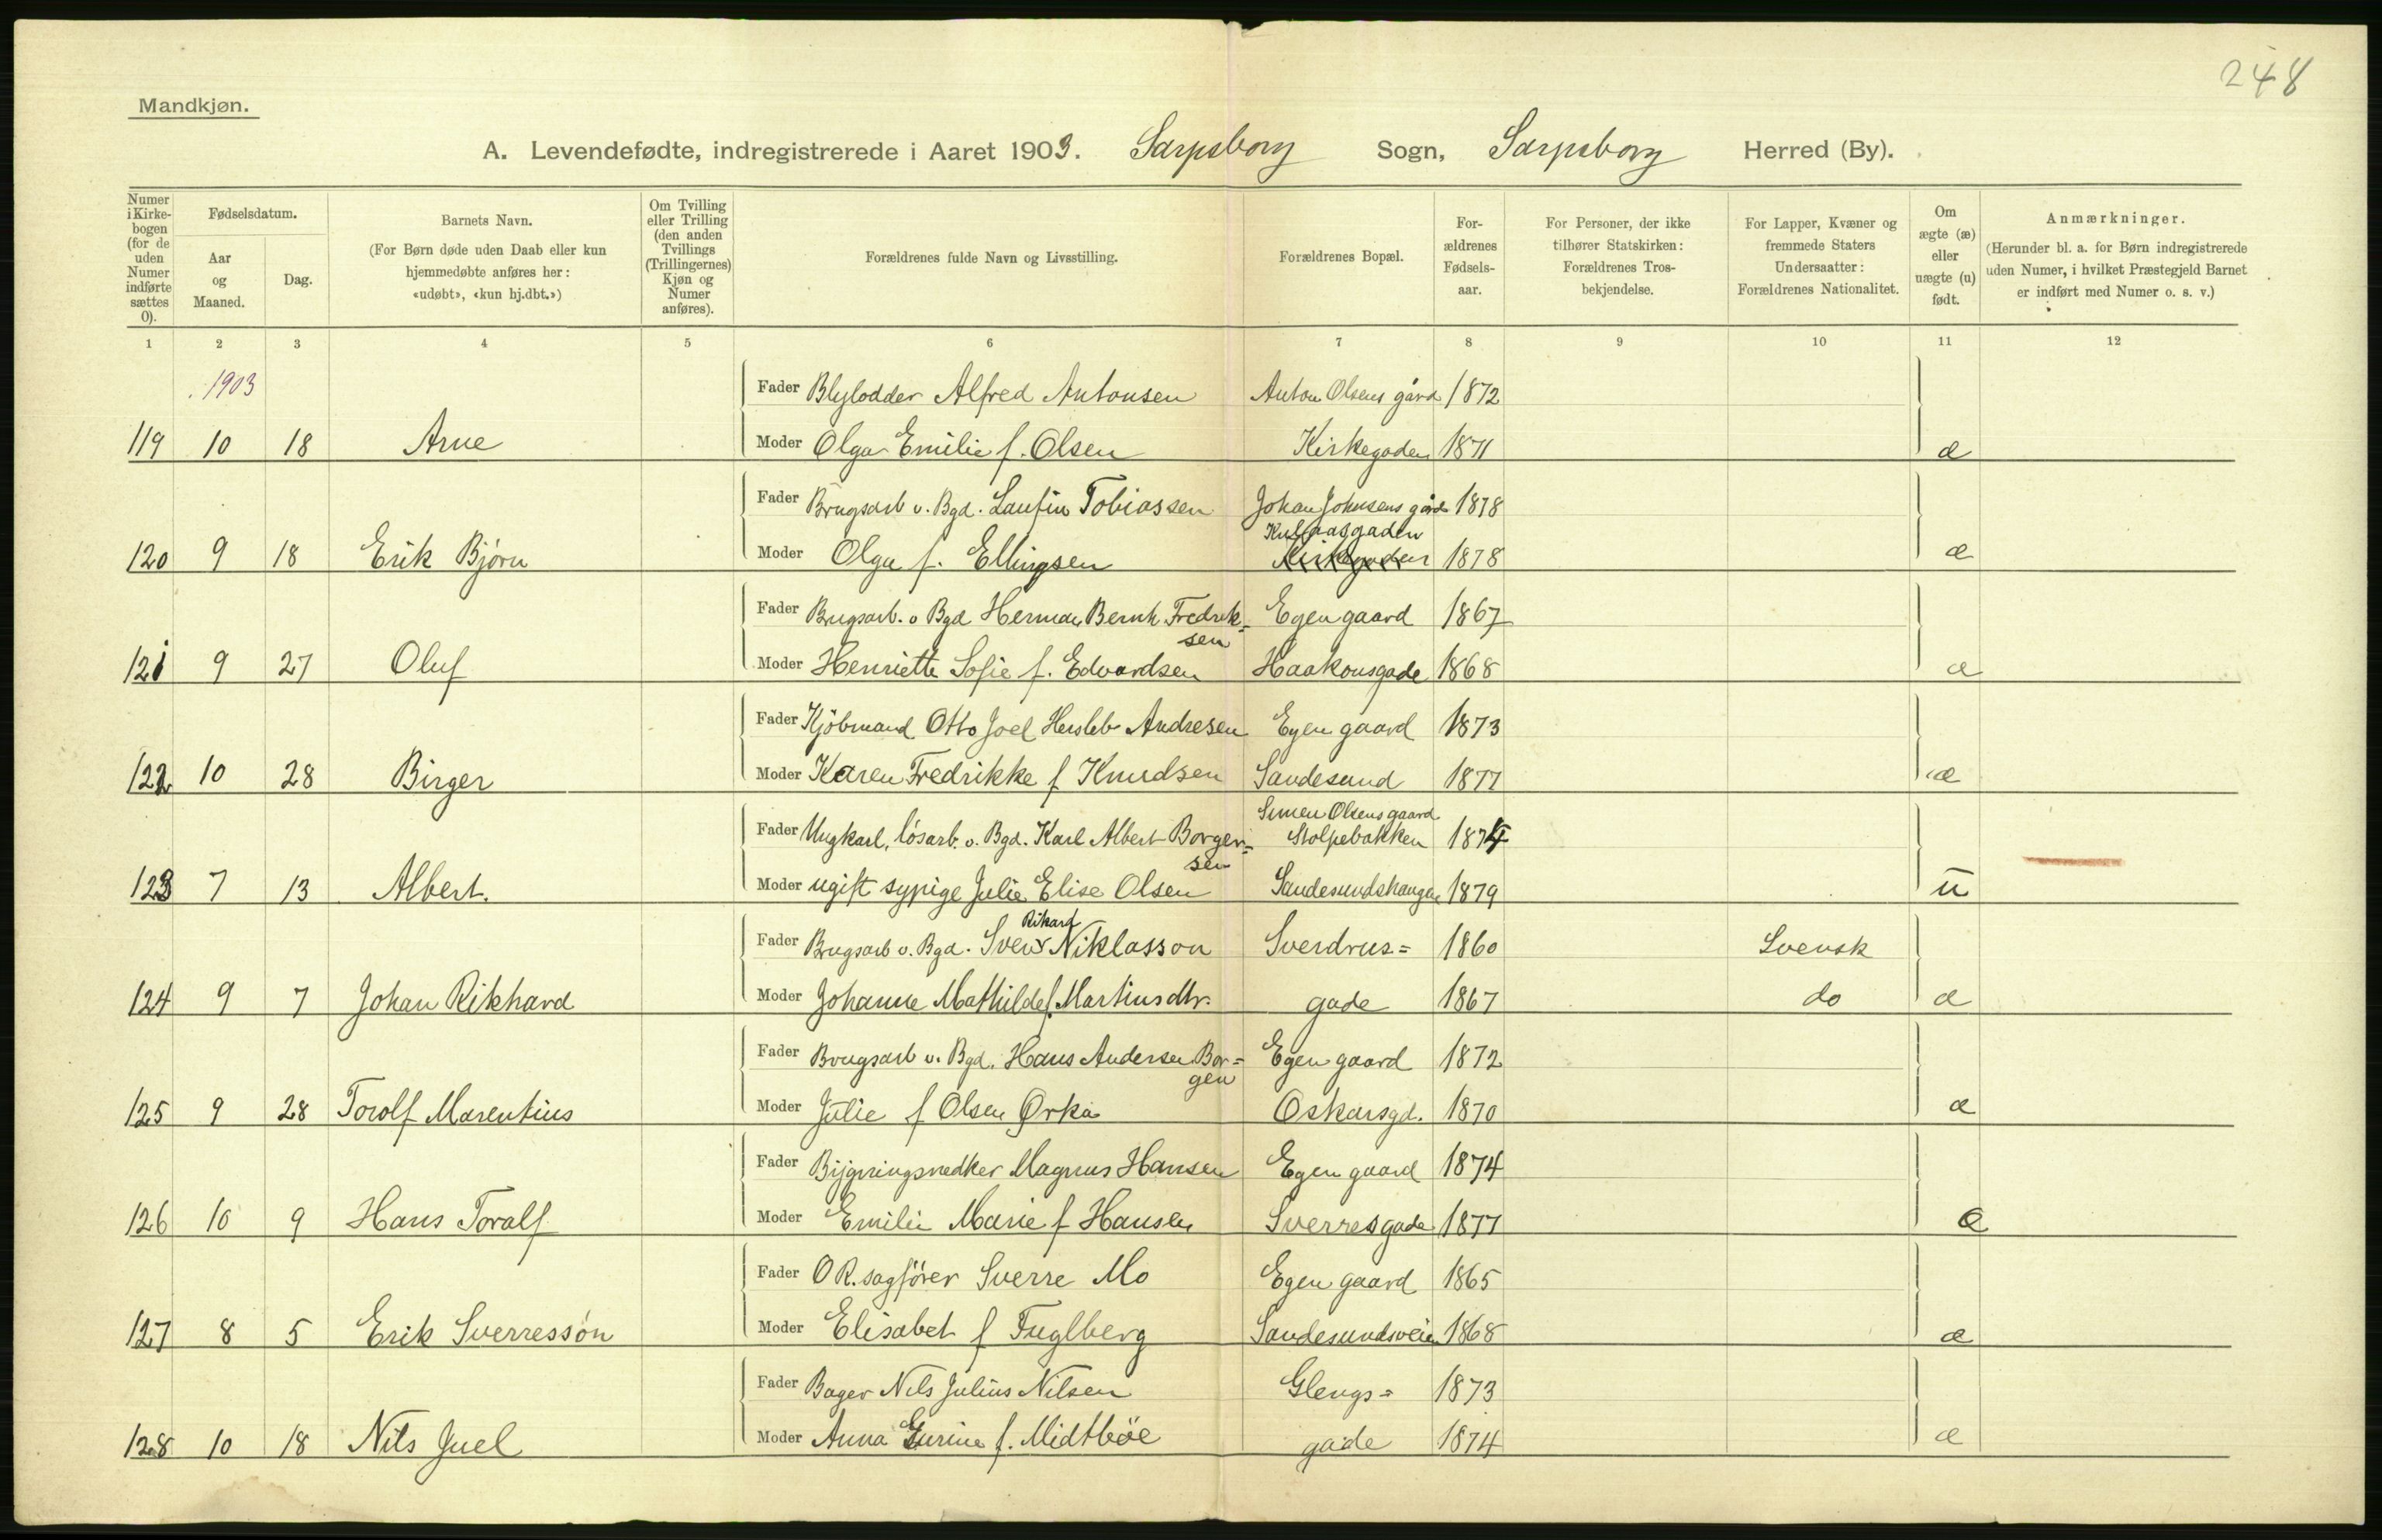 248
Mandkjøn.
A. Levendefødte, indregistrerede i Aaret 1903. Sarpsborg Sogn, Sarpsborg Herred (By).
Numer i Kirkebogen (for de uden Numer indførte sættes 0).
Fødselsdatum.
Aar og Maaned.
Dag.
Barnets Navn.
(For Børn døde uden Daab eller kun hjemmedøbte anføres her: «udøbt», «kun hj.dbt.»)
Om Tvilling eller Trilling (den anden Tvillings (Trillingernes) Kjøn og Numer anføres).
Forældrenes fulde Navn og Livsstilling.
Forældrenes Bopæl.
Forældrenes Fødselsaar.
For Personer, der ikke tilhører Statskirken: Forældrenes Trosbekjendelse.
For Lapper, Kvæner og fremmede Staters Undersaatter: Forældrenes Nationalitet.
Om ægte (æ) eller uægte (u) født.
Anmærkninger.
(Herunder bl. a. for Børn indregistrerede uden Numer, i hvilket Præstegjeld Barnet er indført med Numer o. s. v.)
1 2 3 4 5 6 7 8 9 10 11 12
1903
Fader Blylodder Alfred Antonsen Anton Olsens gård 1872
119 10 18 Arne Moder Olga Emilie f. Olsen Kirkegaden 1871 æ
Fader Brugsarb v. Bgd. Laufin Tobiassen Johan Johnsens gård 1878
Kulaasgaden
120 9 18 Erik Bjørn Moder Olga f. Ellingsen Kirkegaden 1878 æ
Fader Brugsarb. v Bgd Herman Bernh. Fredrik= Egen gaard 1867
sen
121 9 27 Oluf Moder Henriette Sofie f. Edvardsen Haakonsgade 1868 æ
Fader Kjøbmand Otto Joel Hersleb Andresen Egen gaard 1873
122 10 28 Birger Moder Karen Fredrikke f Knudsen Sandesund 1877 æ
Simen Olsens gaard
Fader Ungkarl, løsarb. v. Bgd. Karl Albert Borger= Stolpebakken 1874
sen
123 7 13 Albert. Moder ugift sypige Julie Elise Olsen Sandesundshaugen 1879 u
Rikard
Fader Brugsarb v. Bgd. Sven Niklasson Sverdrus= 1860 Svensk
124 9 7 Johan Rikhard Moder Johanne Mathilde f. Martinsdtr. gade 1867 do æ
Fader Brugsarb v. Bgd. Hans Andersen Bor= Egen gaard 1872
gen
125 9 28 Torolf Marentius Moder Julie f Olsen Ørka Oskarsgd. 1870 æ
Fader Bygningsnedker Magnus Hansen Egen gaard 1874
126 10 9 Hans Toralf Moder Emilie Marie f Hansen Sverresgade 1877 æ
Fader O R. sagfører Sverre Mo Egen gaard 1865
127 8 5 Erik Sverressøn Moder Elisabet f Fuglberg Sandesundsveien 1868 æ
Fader Bager Nils Julius Nilsen Glengs= 1873
128 10 18 Nils Juel Moder Anna Gurine f. Midtbøe gade 1874 æ